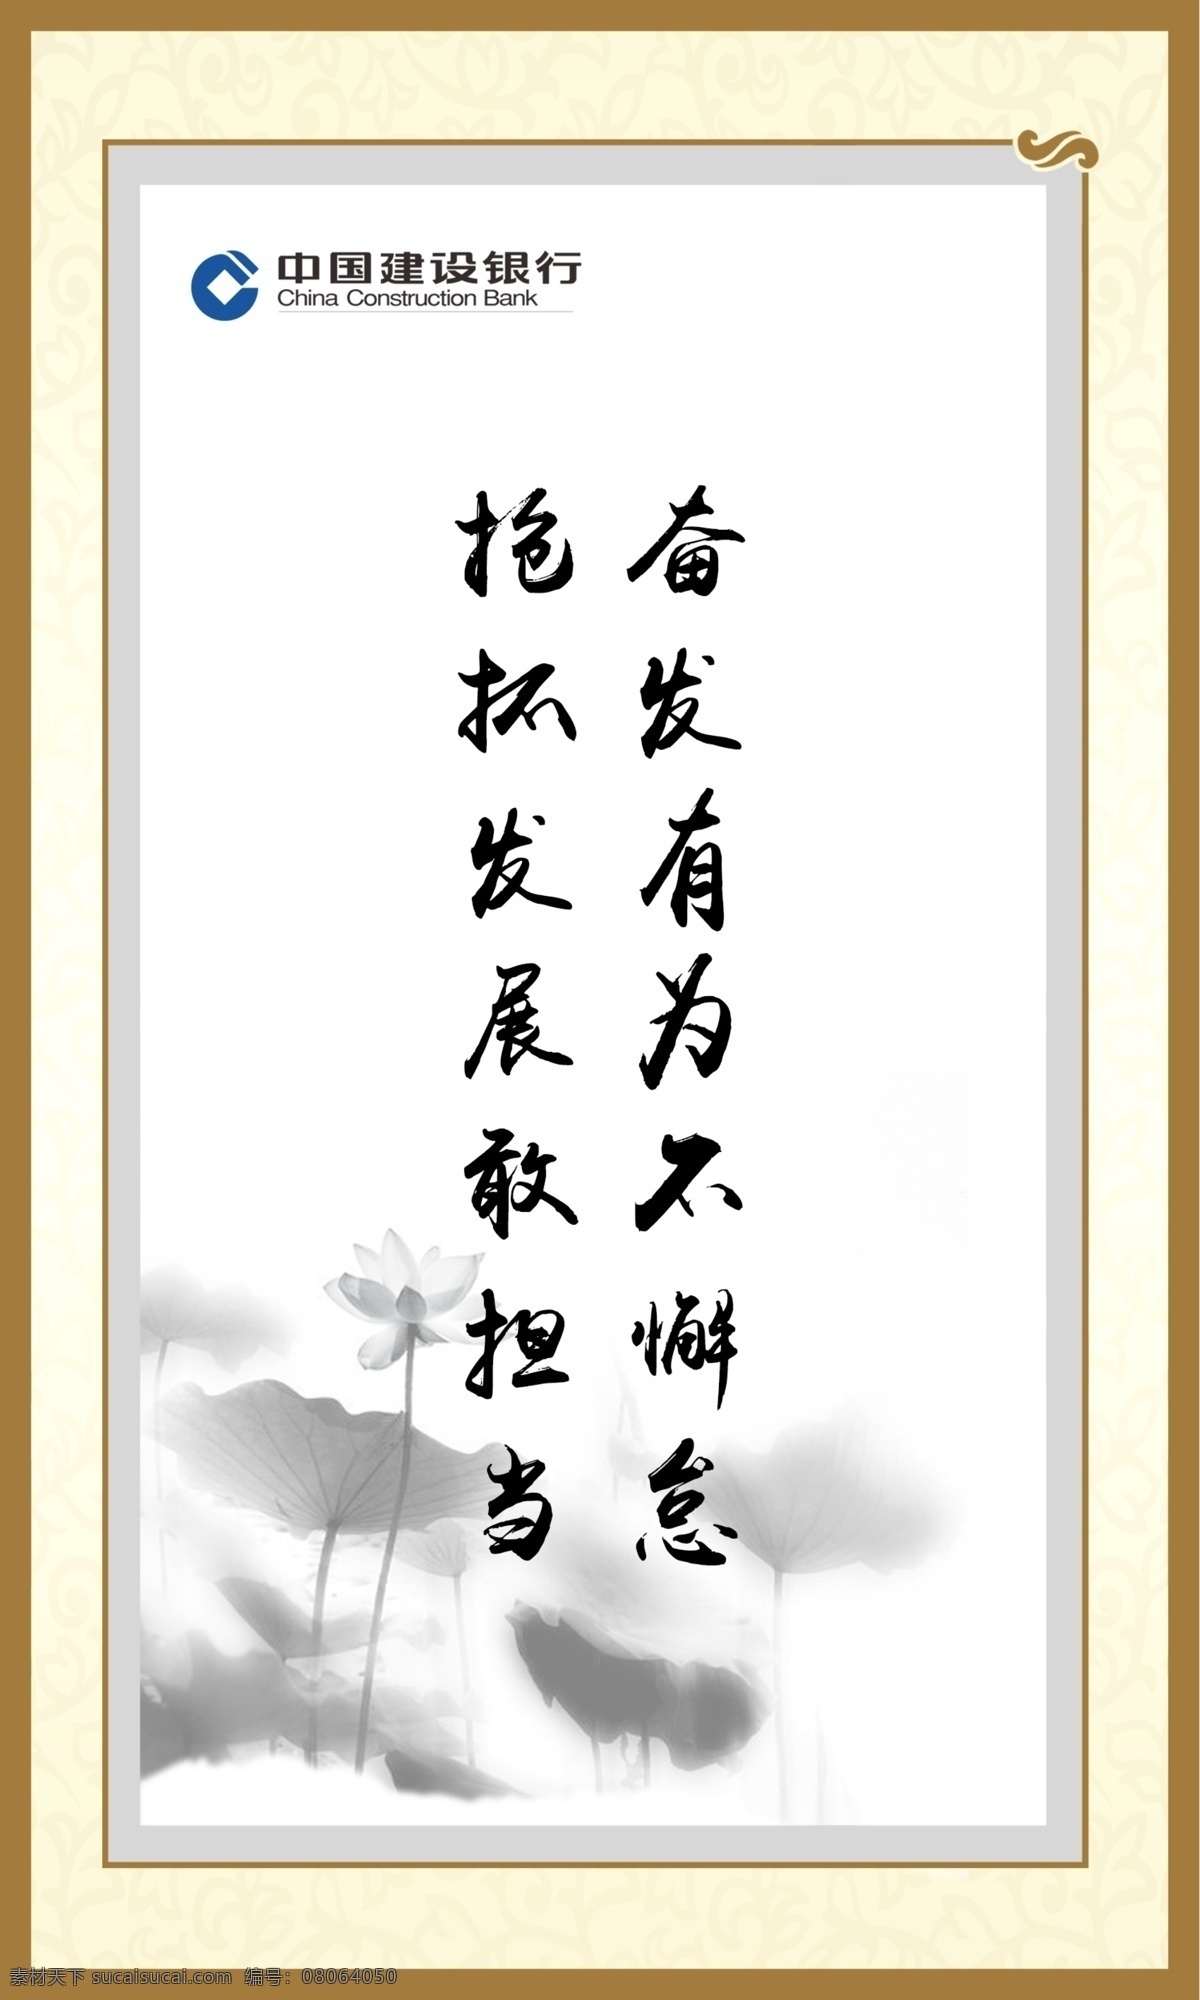 中国建设银行
China Construction Bank
奋发有为不懈怠
抢抓发展敢担当
素材天下 sucaisucai.com 编号：08064050